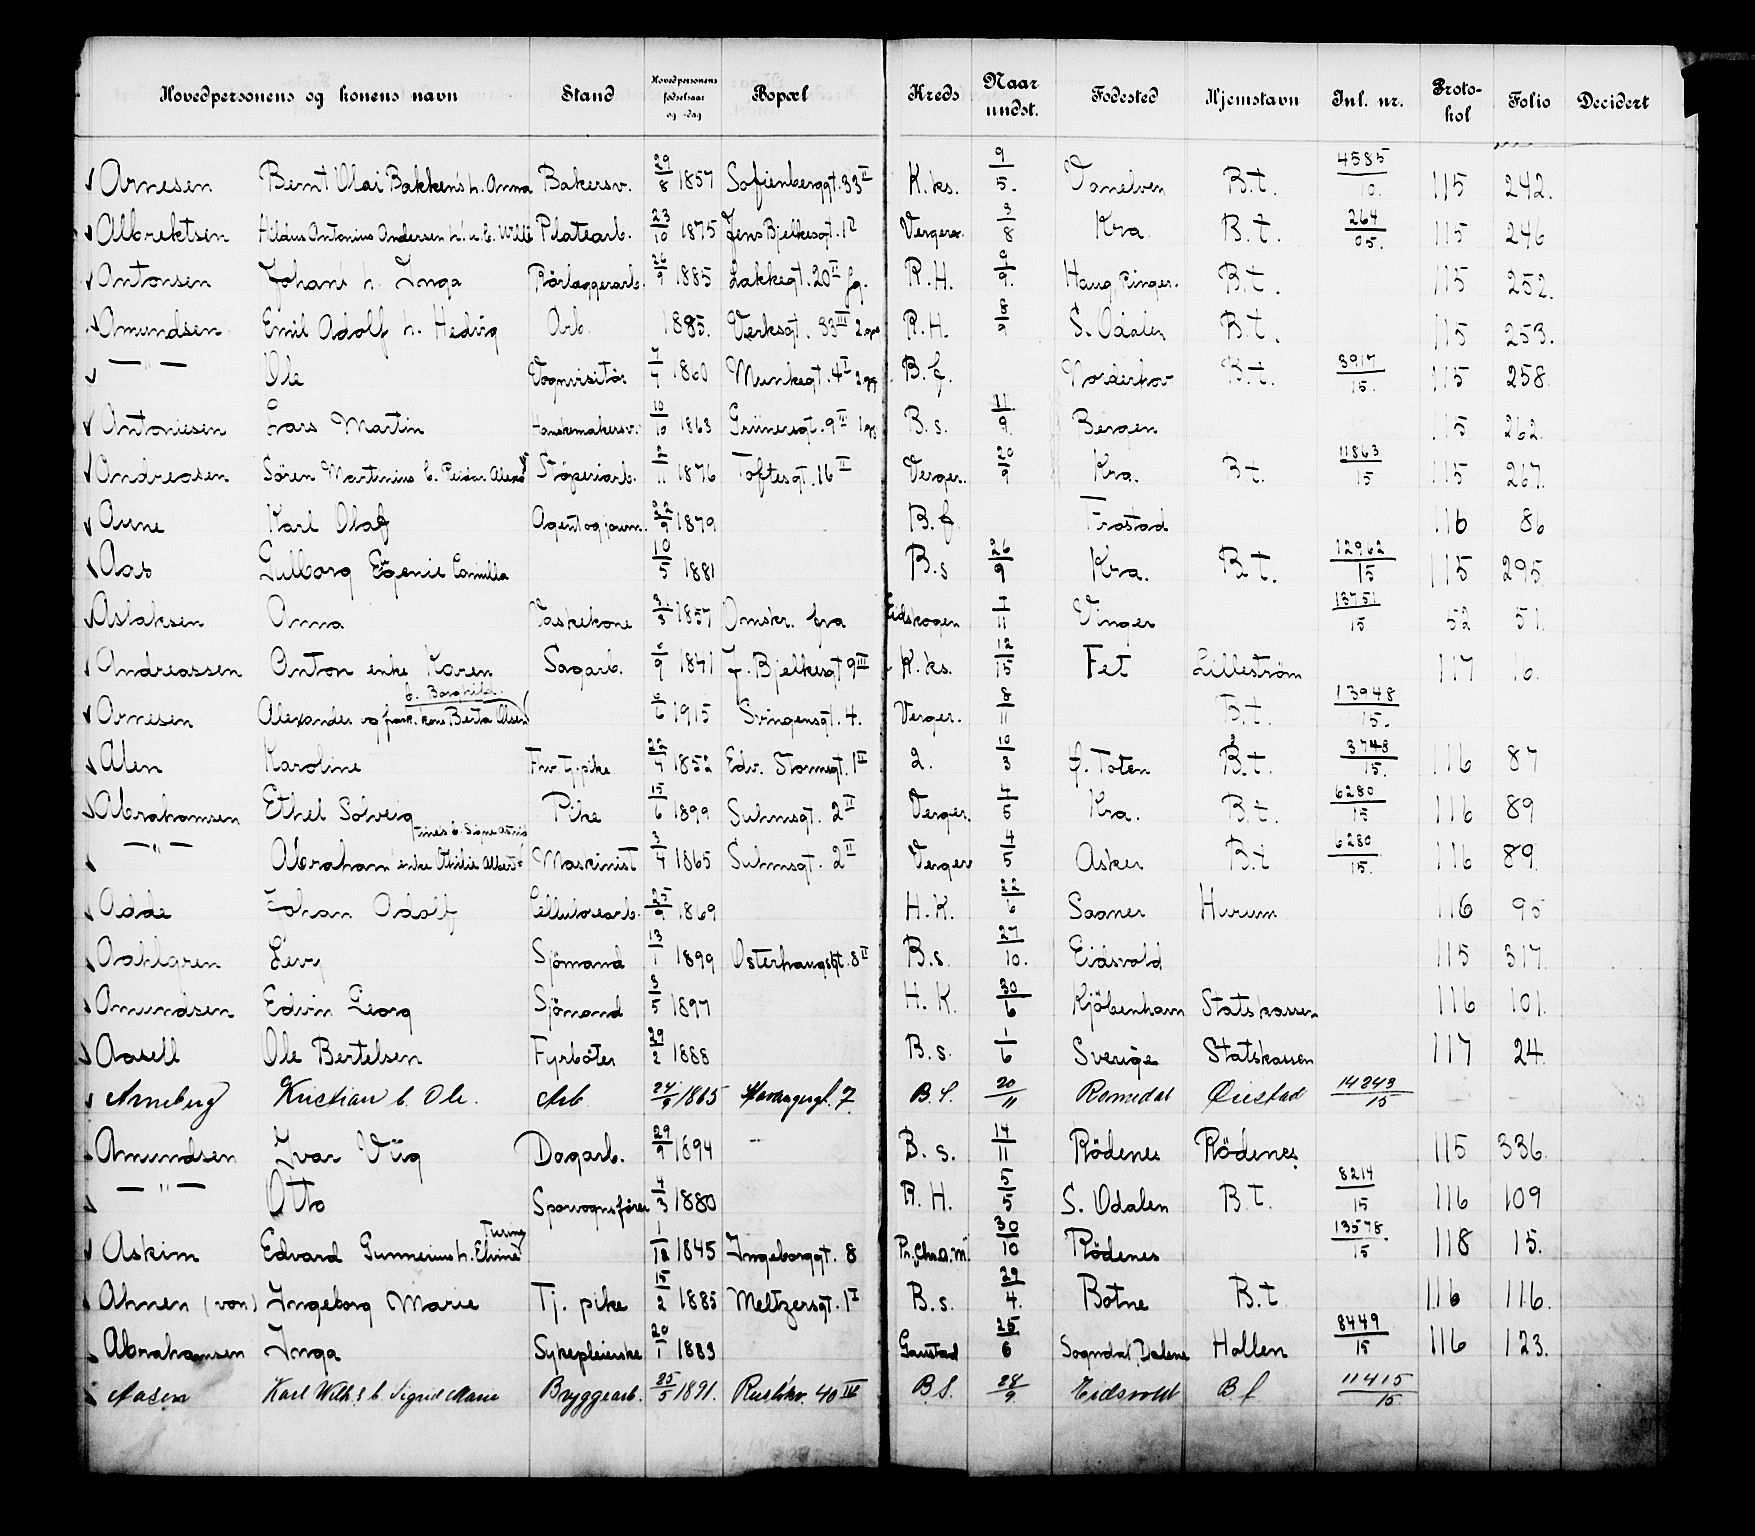 Hovedpersonens og konens navn Stand Hovedpersonens fødselsaar og -dag Bopæl Kreds Naar undst. Fødested Hjemstavn Inl. nr. Protokol Folio Decidert
Arnesen Bernt Olai Bakken's h. Anna Bakersv. 29/8 1857 Sofienberggt. 33 II K. ks. 9/5. Vanelven B.t. 4585/10. 115 242.
Albrektsen Hildus Antonius Andersen h. Platearb. 23/10 1875 Jens Bjelkesgt. 1 Vergerø. 3/8 Kra B.t. 264/05. 115 246
Antonsen Johan's h. Inga Rörlæggerarb. 26/9 1885 Lakkegt. 20 II fg. R.H. 9/9. Haug, Ringer. B.t. 115 252.
Amundsen Emil Adolf h. Hedvig Arb. 1885. Verksgt. 33 III 2 opg R.H. 8/9 S. Odalen B.t. 115 253.
— " — Ole Vognvisitör 7/7 1860 Munkegt. 4 I 2 opg. B.f. Norderhov B.t. 3917/15. 115 258.
Antoniesen Lars Martin Hanskemakersv. 10/10 1863 Grünersgt. 9 II 1 opg B.s. 11/9. Bergen 115 262.
Andreasen Sören Martinius b. Peider Alexs Stöperiarb. 2/11 1876 Toftesgt. 16 II Verger. 20/9 Kra. B.t. 11863/15 115 267.
Arne Karl Olaf Agent og journ. 22/9 1879 B.f Frostad 116 86
Aas Gulborg Eugenie Camilla 10/5 1881 B.s 26/9 Kra. B.t. 12962/15 115 295.
Aslaksen Anna Vaskekone 3/3 1857 Omskr. fra Eidskogen 7/11 Vinger 13751/15 52 51.
Andreassen Anton enke Karen Sagarb. 6/9 1841 J. Bjelkesgt 9 III K. ks. 12/15 Fet Lilleström 117 16.
b. Borghild.
Arnesen Alexander og frask. kone Berta Olsen 6/6 1915 Svingensgt. 4. Verger. 8/11 B.t. 13948/15.
Alen Karoline Frv. tj. pike 22/7 1852 Edv. Stormsgt. 1 II 2. 10/3 Ö. Toten B.t. 3748/15. 116 87
Abrahamsen Ethel Solveig Pike 15/6 1899 Suhmsgt. 2 II Verger. 4/5 Kra. B.t. 6280/15 116 89
— " — Abraham enke Othilie Alberts Maskinist 3/4 1865 Suhmsgt. 2 II Verger 4/5 Asker B.t 6280/15. 116 89.
Adde Johan Adolf Cellulosearb. 25/9 1869 H.K. 22/6 Saaner Hurum 116 95
Aahlgren Levy Sjömand 13/1 1899 Osterhausgt. 8 II B.s. 27/10. Eidsvold 115 317.
Amundsen Edvin Georg Sjömand 3/5 1897 H.K. 30/6 Kjöbenhavn Statskassen 116 101.
Aasell Ole Bertelsen Fyrböter 29/2 1888 B.s. 1/6 Sverige Statskassen 117 24.
Arneberg Kristian b. Ole. Arb. 24/9 1865 Stavangergt. 7. B.s. 20/11 Romedal Öiestad 14243/15
Amundsen Ivar Viig Dagarb. 29/9 1894 B.s. 14/11 Rödenes Rödenes. 115 336.
— " — Otto Sporvognsförer 4/3 1880 R.H. 5/5 S. Odalen B.t. 8214/15 116 109
Askim Edvard Gunnerius h. Elvine Turine 1/12 1845 Ingeborggt. 8 Pr. Chra. M. 30/10 Rödenes 13578/15 118 15.
Ahnen (von) Ingeborg Marie Tj. pike 15/2 1885 Meltzersgt. 1 I B.s. 29/4. Botne B.t 116 116.
Abrahamsen Inga Sykepleierske 20/1 1883 Gaustad 25/6 Sogndal, Dalene Hollen 8449/15 116 123.
Aasen Karl Wilh.s b. Sigrid Marie Bryggearb. 25/5 1891. Ruslökv. 40 IV B.s. 28/9. Eidsvold B f 11415/15.